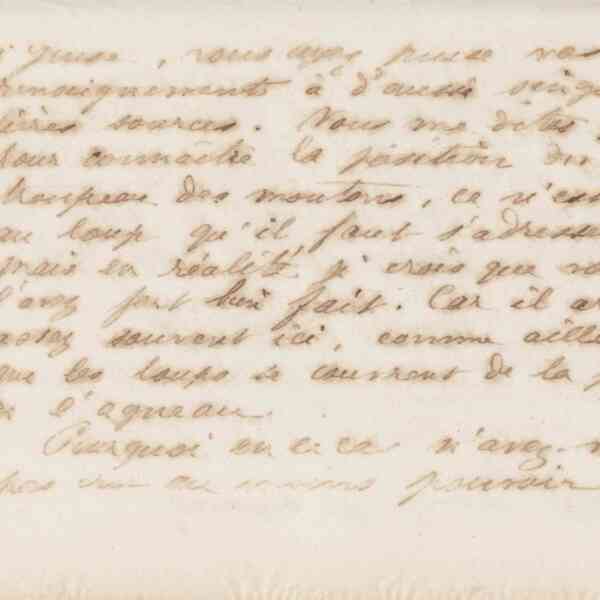 vous avez puisé vos
renseignements à d'aussi singu
lières sources. Vous me dites
Pour connaître la position du
troupeau des moutons, ce n'es
au loup qu'il faut s'adresse
mais en réalité j crois que vo
l'avez fort bien fait. Car il ar
assez souvent ici, comme aille
que les loups se couvrent de la p
de l'agneau.
Pourquoi en ce cas n'avez-v
pas au moins pouvoir